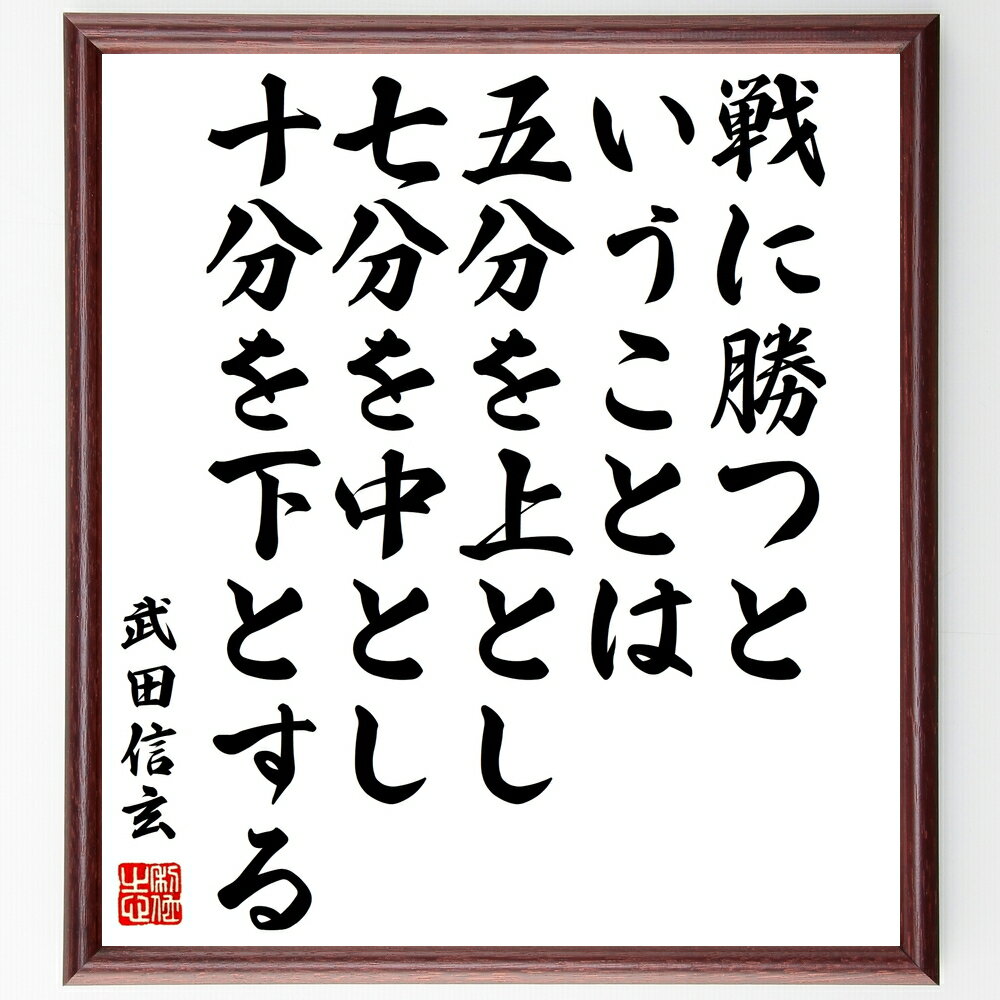 戦に勝つと
いうことは
五分を上とし
七分を中とし
十分を下とする
武田信玄